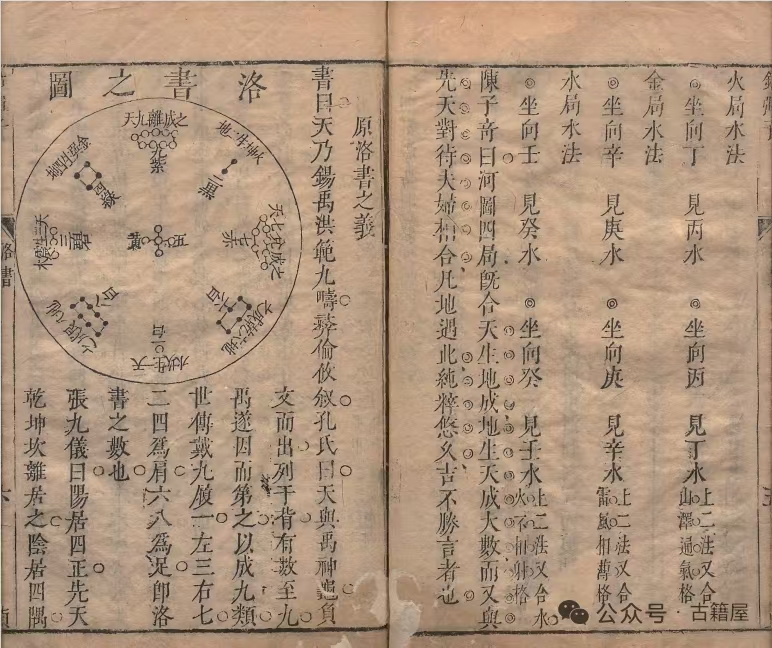 火局水法
◎坐向丁　見丙水　◎坐向丙　見丁水　上二法又合山澤通氣格
金局水法
◎坐向辛　見庚水　◎坐向庚　見辛水　上二法又合雷風相薄格
水局水法
◎坐向壬　見癸水　◎坐向癸　見壬水　上二法又合水火不相射格
陳子奇曰河圖四局旣合天生地成地生天成大數而又與
先天對待夫婦相合凡地遇此純粹悠久吉不勝言者也
原洛書之義
書曰天乃錫禹洪範九疇彝倫攸叙孔氏曰天與禹神龜負
文而出列于背有數至九
禹遂因而第之以成九類
世傳戴九履一左三右七
二四爲肩六八爲足即洛
書之數也
張九儀曰陽居四正先天
乾坤坎離居之陰居四隅
洛書之圖
天九離成之
九紫
二黑
四綠
三
五
七赤
八白
六白
一白
洛書
六
公众号·古籍屋